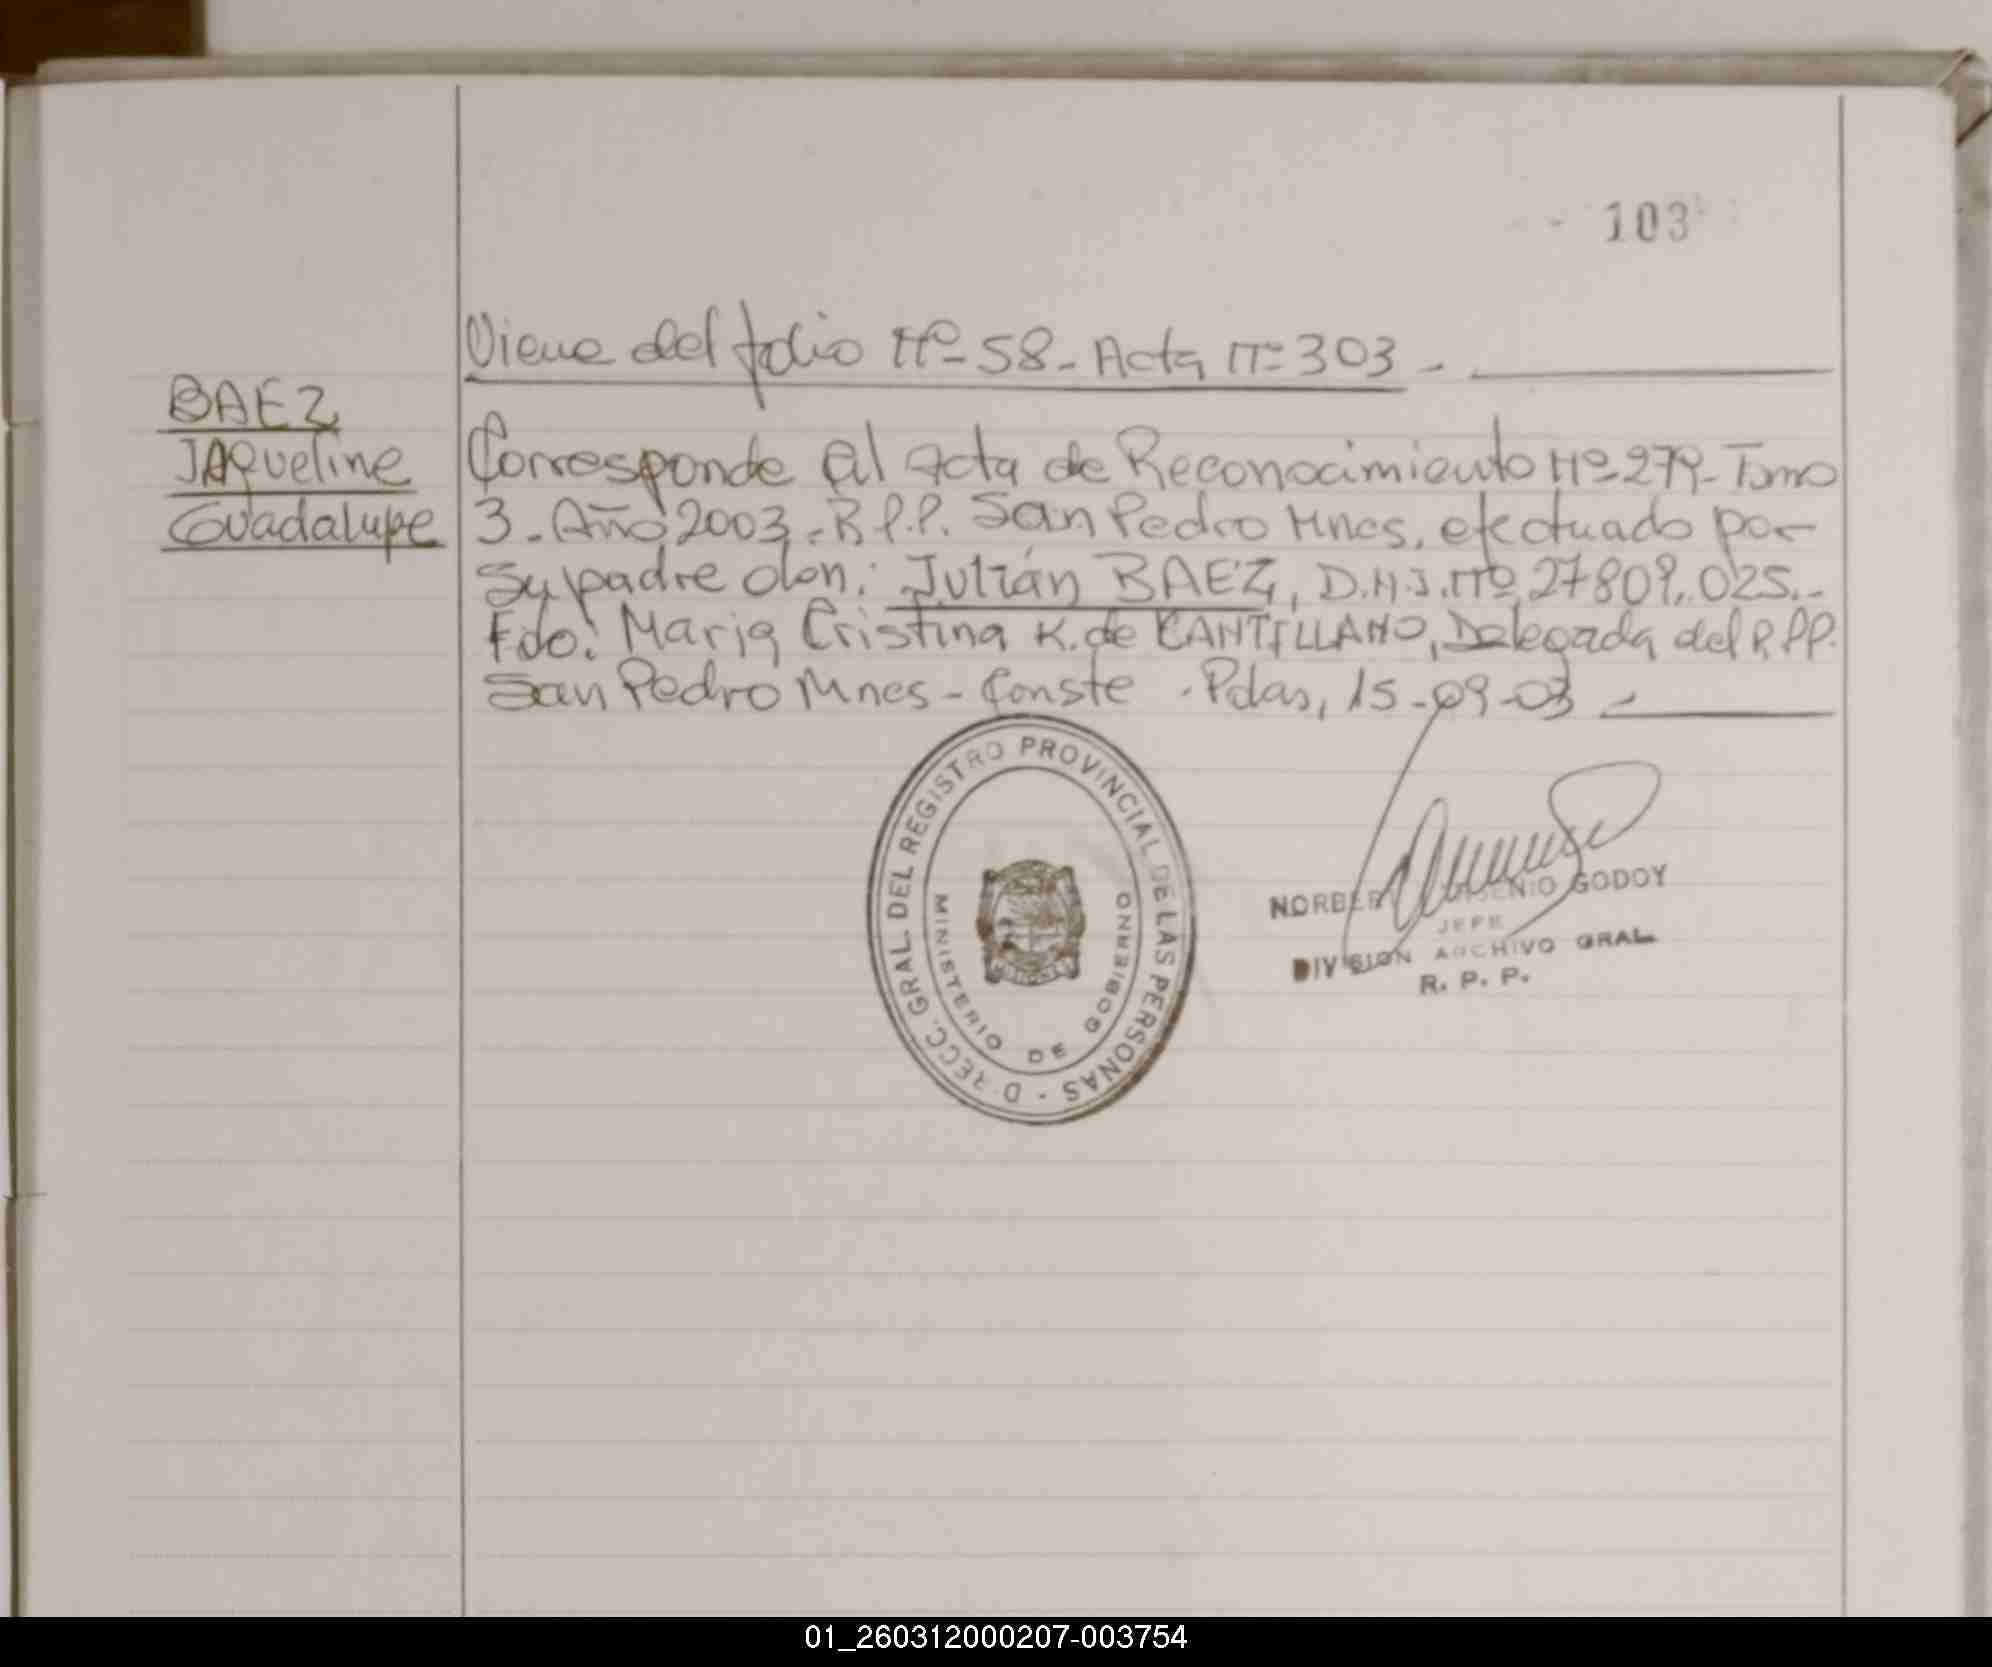 - 103
Viene del folio Nº-58-Acta Nº 303 -
BAEZ
JAQueline
Guadalupe
Corresponde al Acta de Reconocimiento Nº-279-Tomo
3-Año 2003.-R.P.P. San Pedro Mnes, efectuado por
su padre don: Julián BAEZ, D.N.I. Nº 27809.025.-
Fdo: Maria Cristina K. de CANTILLANO, Delegada del R.P.P.
San Pedro Mnes - Conste . Pdas, 15-09-03 -
DIRECC. GRAL. DEL REGISTRO PROVINCIAL DE LAS PERSONAS -
MINISTERIO DE GOBIERNO
GODOY
JEFE
DIVISION ARCHIVO GRAL
R. P. P.
01_260312000207-003754